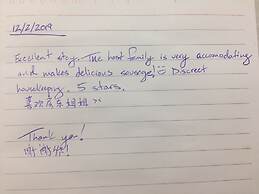 12/2/2019
Excellent stay. The host family is very accomodating
and makes delicious sausage! Discreet
housekeeping. 5 stars.
喜欢房东姐姐
Thank you!
谢谢你!